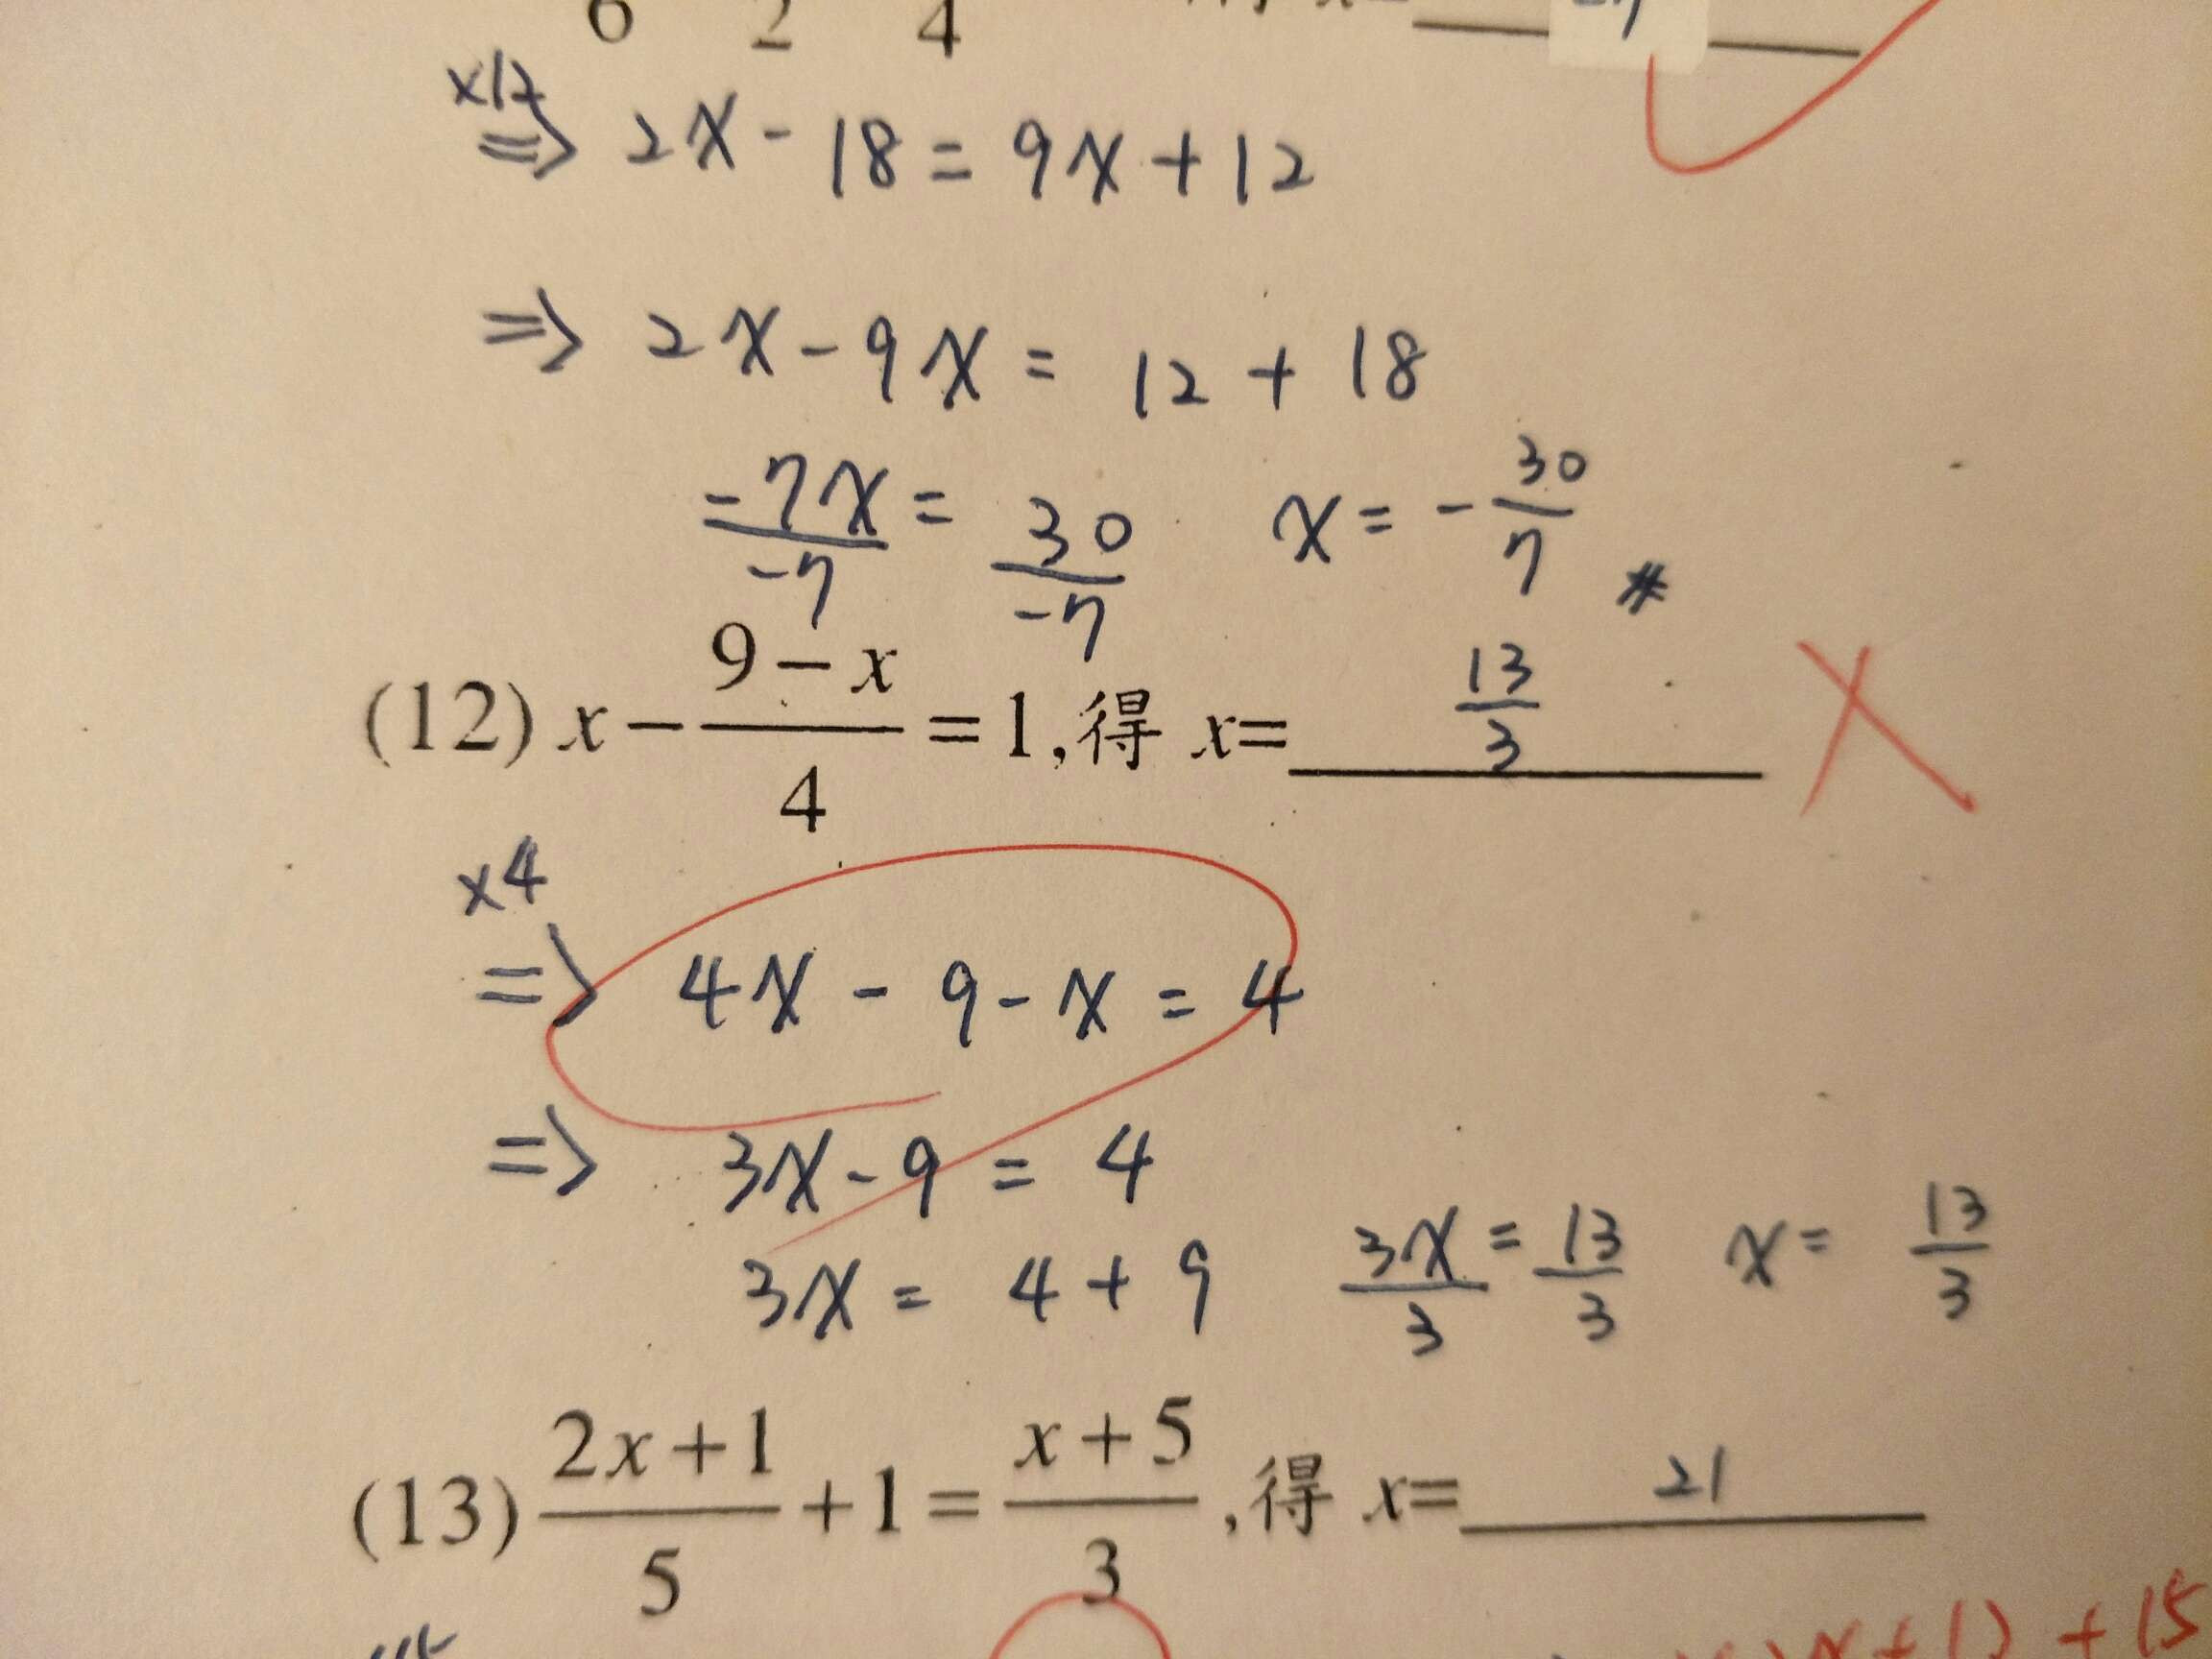 6 2 4
x12
=> 2x - 18 = 9x + 12
=> 2x - 9x = 12 + 18
-7x/-7 = 30/-7 x = -30/7 #
(12) x - (9 - x)/4 = 1,得 x= 13/3
x4
=> 4x - 9 - x = 4
=> 3x - 9 = 4
3x = 4 + 9 3x/3 = 13/3 x = 13/3
(13) (2x + 1)/5 + 1 = (x + 5)/3 ,得 x= 21
+ 15